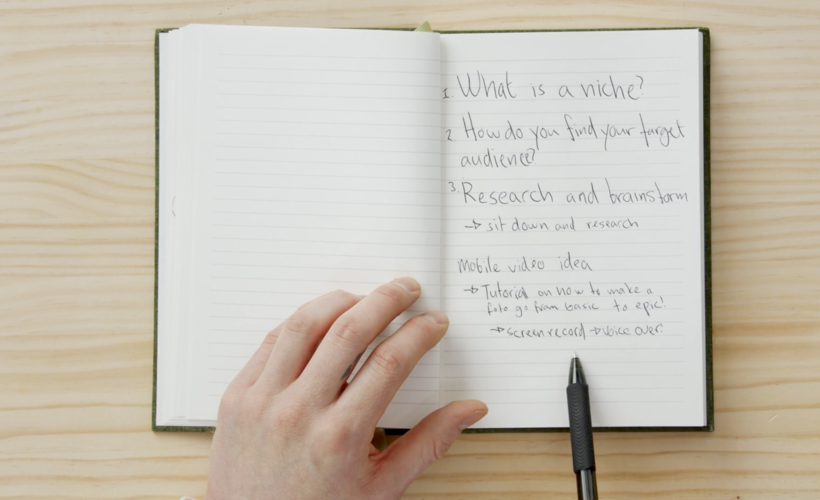 1. What is a niche?
2. How do you find your target
audience?
3. Research and brainstorm
→ sit down and research
Mobile video idea
→ Tutorial on how to make a
foto go from basic to epic!
→ screen record → voice over!